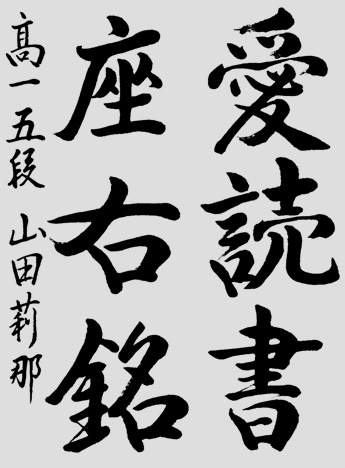 愛読書
座右銘
高一五段 山田莉那